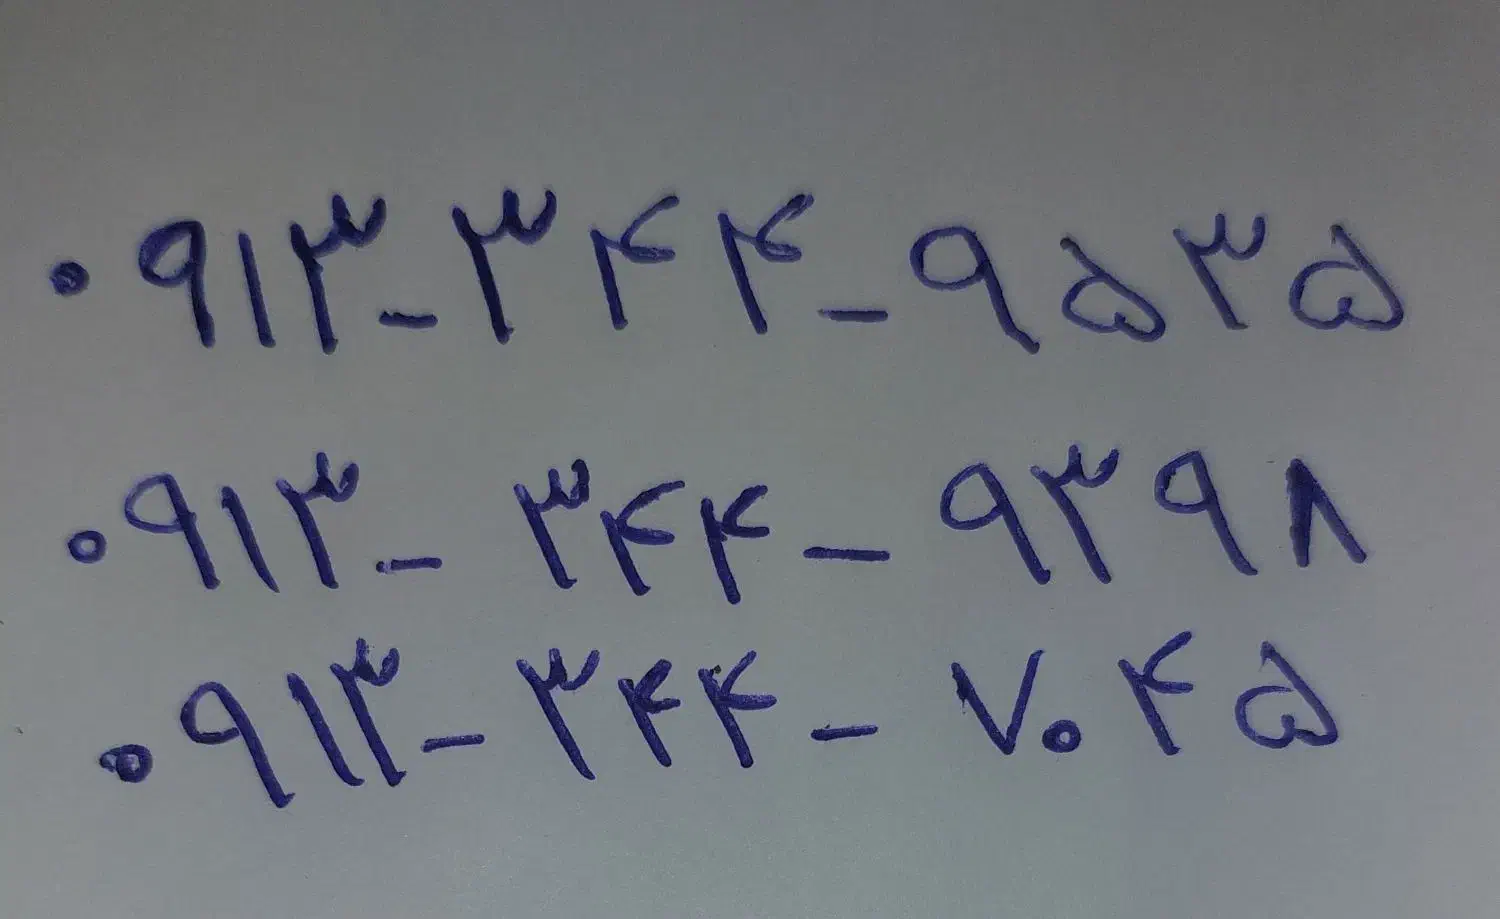 ۰۹۱۳-۳۴۴-۹۵۳۵
۰۹۱۳-۳۴۴-۹۳۹۸
۰۹۱۳-۳۴۴-۷۰۴۵